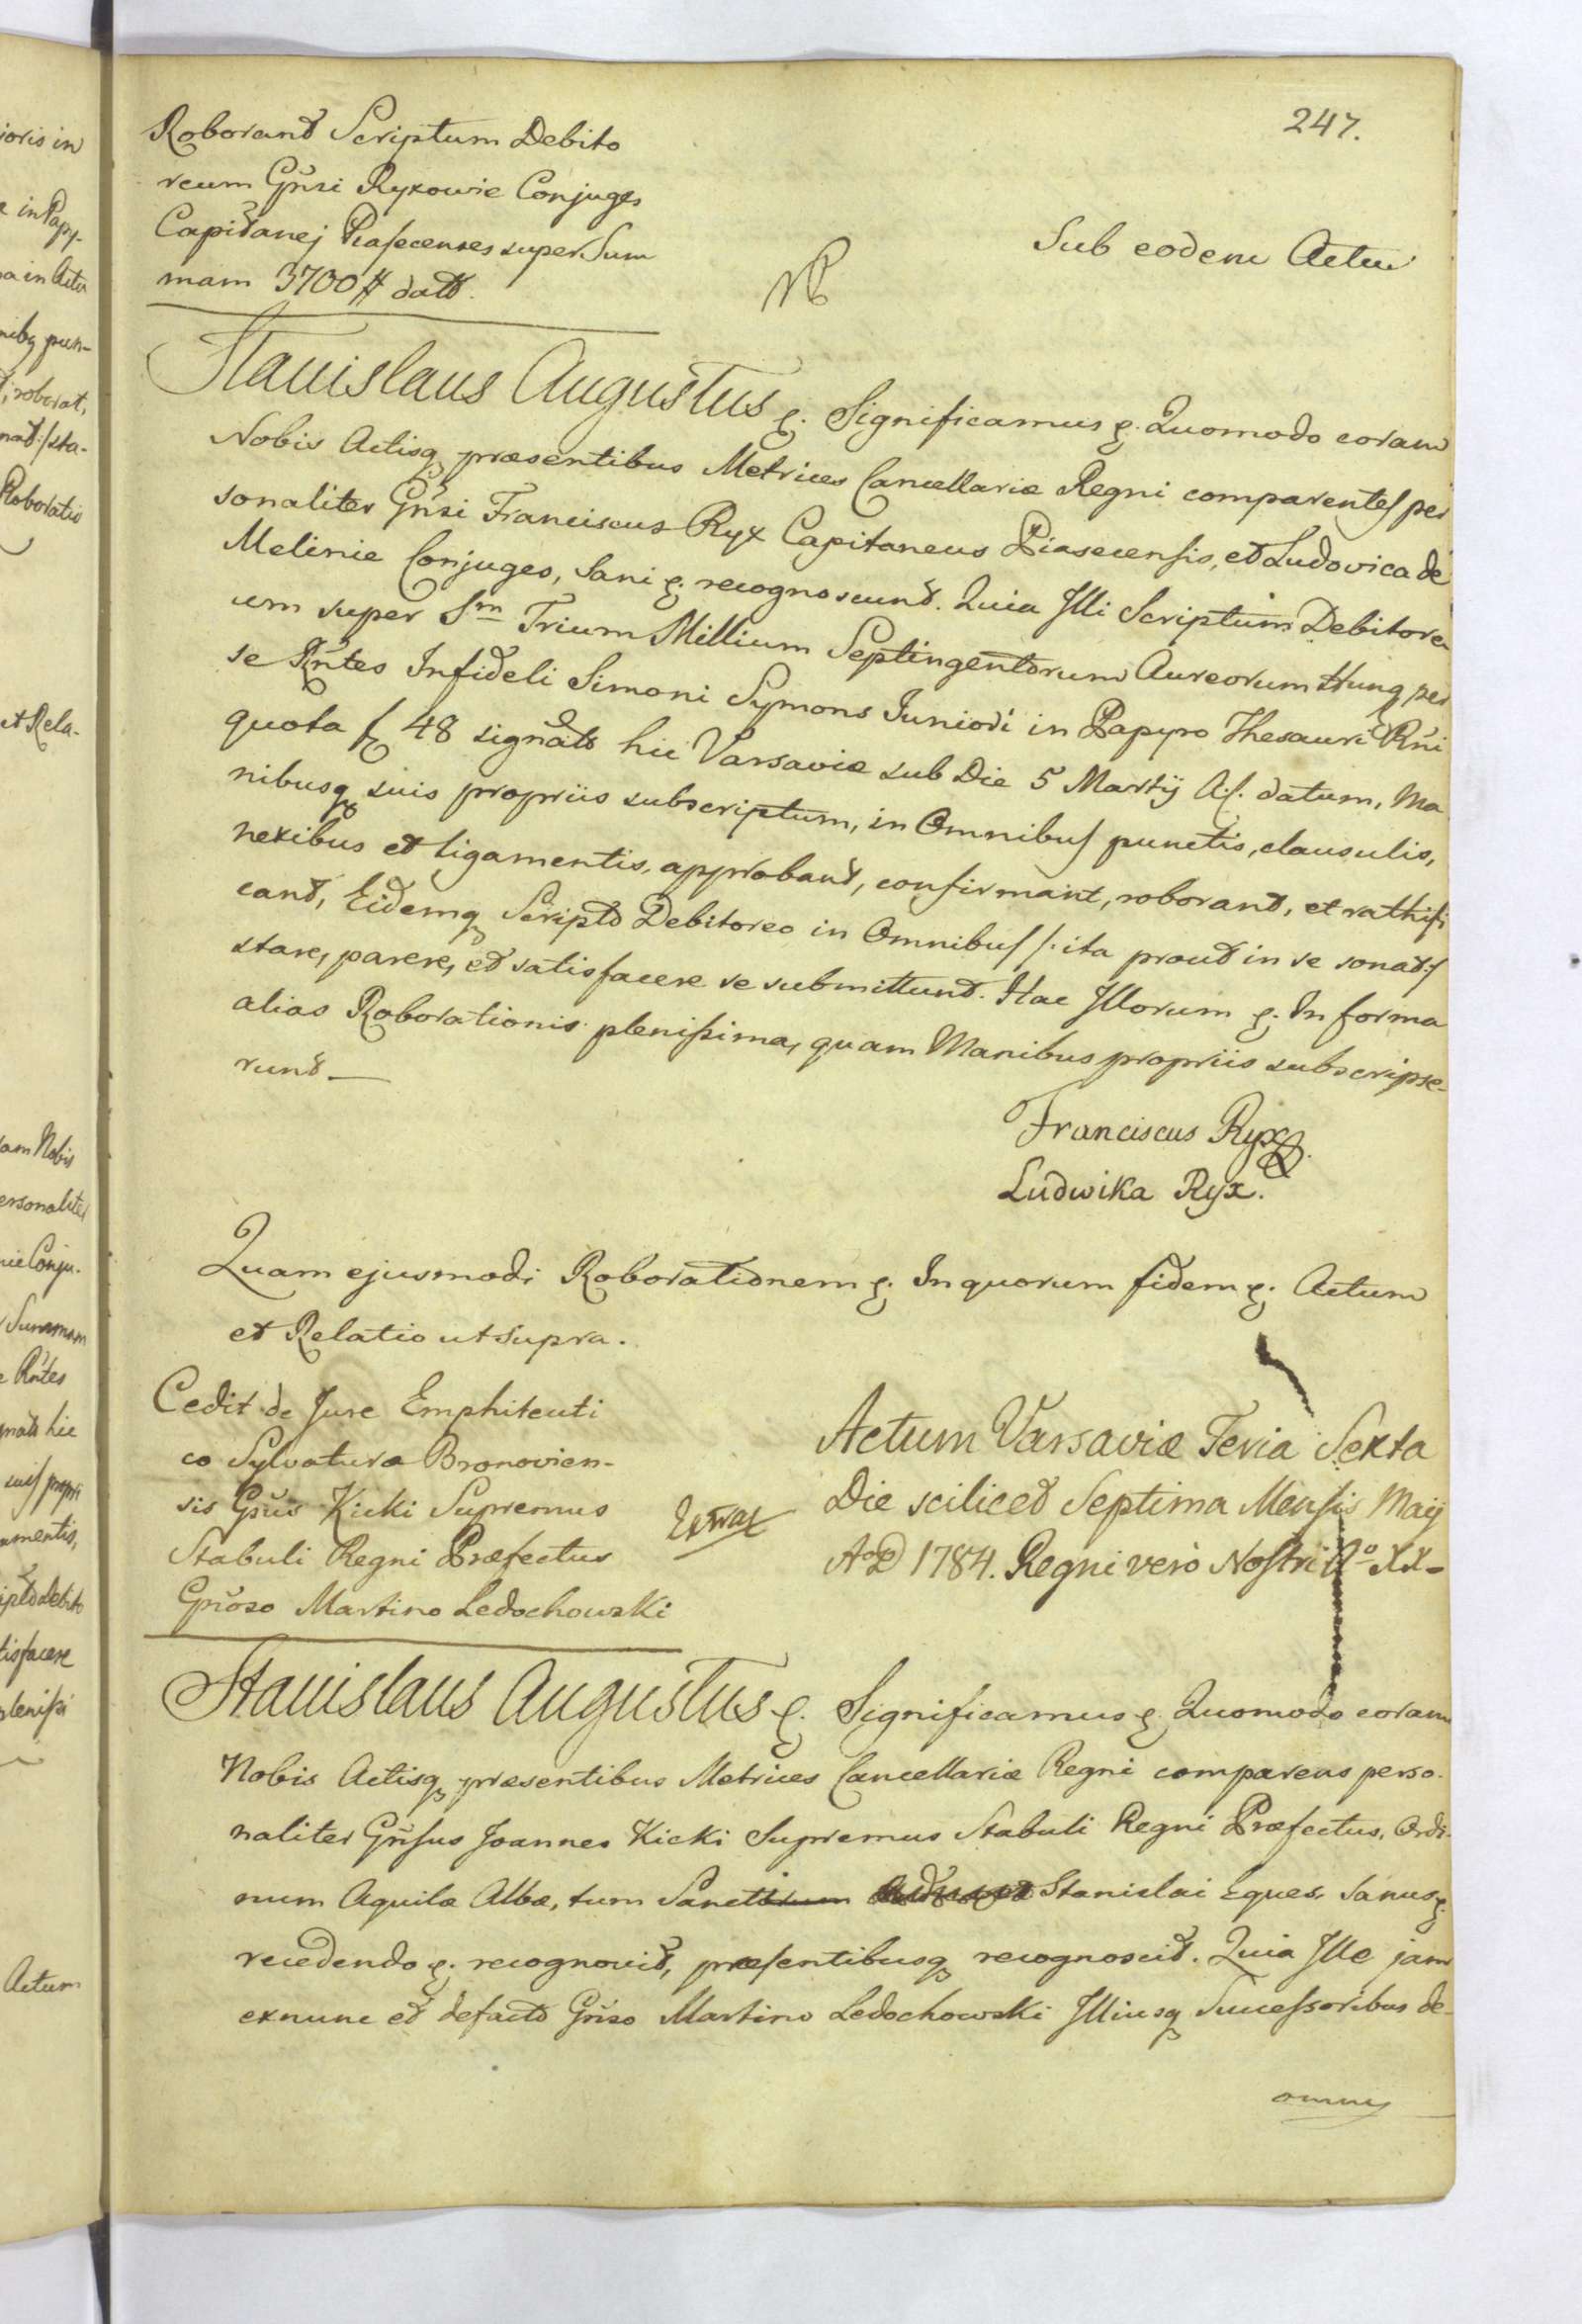 247.
Roborant Scriptum Debito
reum Gñsi Ryxowie Conjuges
Capitanej Piasecenses super Sum
mam 3700 # datt.
Sub eodem Actu
Stanislaus Augustus &. Significamus &. Quomodo coram
Nobis Actisq præsentibus Metrices Cancellariæ Regni comparentes per
sonaliter Gñsi Franciscus Ryx Capitaneus Piasecensis, et Ludovica de
Melinie Conjuges, Sani &. recognoscunt. Quia Illi Scriptum Debitore
um super Sm Trium Millium Septingentorum Aureorum Hung per
se Rñtes Infideli Simoni Symons Juniori in Papyro Thesauri Rñi
quota f 48 signat hic Varsaviæ sub Die 5 Martij A. C. datum, Ma
nibusq suis propriis subscriptum, in Omnibus punctis, clausulis,
nexibus et ligamentis, approbant, confirmant, roborant, et rathifi
cant, Eidemq Scripto Debitoreo in Omnibus /: ita prout in se sonat :/
stare, parere, et satisfacere se submittunt. Hac Illorum &. In forma
alias Roborationis plenissima, quam Manibus propriis subscripse-
runt —
Franciscus Ryx
Ludwika Ryx.
Quam ejusmodi Roborationem &. In quorum fidem &. Actum
et Relatio ut supra.
Cedit de Jure Emphiteuti
co Sylvaturæ Bronovien-
sis Gñus Kicki Supremus
Stabuli Regni Præfectus
Gñoso Martino Ledochowski
Extrax
Actum Varsaviæ Feria Sexta
Die scilicet Septima Mensis Maij
AoD 1784. Regni vero Nostri Ao XX-
Stanislaus Augustus &. Significamus &. Quomodo coram
Nobis Actisq præsentibus Metrices Cancellariæ Regni comparens perso-
naliter Gñsus Joannes Kicki Supremus Stabuli Regni Præfectus, Ordi-
num Aquilæ Albæ, tum Sancti Stanislai Eques, Sanus &.
recedendo &. recognovit, præsentibusq recognoscit. Quia Ille jam
exnunc et defacto Gñso Martino Ledochowski Illiusq Successoribus de-
omnes